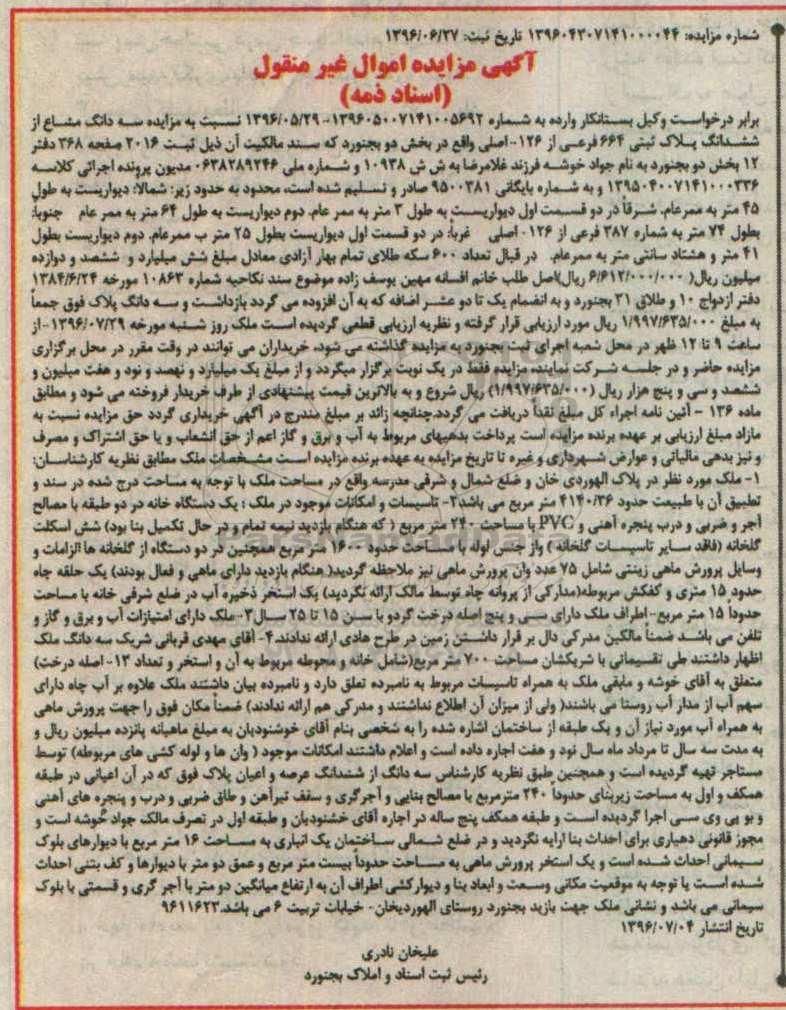 شماره مزایده: ۱۳۹۶۰۴۳۰۷۱۴۱۰۰۰۰۴۴ تاریخ ثبت: ۱۳۹۶/۰۶/۲۷
آگهی مزایده اموال غیر منقول
(اسناد ذمه)
برابر درخواست وکیل بستانکار وارده به شماره ۱۳۹۶۰۵۰۰۷۱۴۱۰۰۵۶۹۲- ۱۳۹۶/۰۵/۲۹ نسبت به مزایده سه دانگ مشاع از
ششدانگ پلاک ثبتی ۶۶۴ فرعی از ۱۲۶- اصلی واقع در بخش دو بجنورد که سند مالکیت آن ذیل ثبت ۲۰۱۶ صفحه ۳۶۸ دفتر
۱۲ بخش دو بجنورد به نام جواد خوشه فرزند غلامرضا به ش ش ۱۰۹۳۸ و شماره ملی ۰۶۳۸۲۸۹۲۴۶ مدیون پرونده اجرائی کلاسه
۱۳۹۵۰۴۰۰۷۱۴۱۰۰۰۳۳۶ و به شماره بایگانی ۹۵۰۰۳۸۱ صادر و تسلیم شده است، محدود به حدود زیر: شمالا: دیواریست به طول
۴۵ متر به ممرعام. شرقاً در دو قسمت اول دیواریست به طول ۳ متر به ممر عام. دوم دیواریست به طول ۶۴ متر به ممر عام جنوبا:
بطول ۷۴ متر به شماره ۳۸۷ فرعی از ۱۲۶- اصلی غرباً: در دو قسمت اول دیواریست بطول ۲۵ متر ب ممرعام. دوم دیواریست بطول
۴۱ متر و هشتاد سانتی متر به ممرعام. در قبال تعداد ۶۰۰ سکه طلای تمام بهار آزادی معادل مبلغ شش میلیارد و ششصد و دوازده
میلیون ریال( ۶/۶۱۲/۰۰۰/۰۰۰ ریال)اصل طلب خانم افسانه مهین یوسف زاده موضوع سند نکاحیه شماره ۱۰۸۶۳ مورخه ۱۳۸۴/۶/۲۴
دفتر ازدواج ۱۰ و طلاق ۲۱ بجنورد و به انضمام یک تا دو عشر اضافه که به آن افزوده می گردد بازداشت و سه دانگ پلاک فوق جمعاً
به مبلغ ۱/۹۹۷/۶۳۵/۰۰۰ ریال مورد ارزیابی قرار گرفته و نظریه ارزیابی قطعی گردیده است ملک روز شنبه مورخه ۱۳۹۶/۰۷/۲۹-از
ساعت ۹ تا ۱۲ ظهر در محل شعبه اجرای ثبت بجنورد به مزایده گذاشته می شود، خریداران می توانند در وقت مقرر در محل برگزاری
مزایده حاضر و در جلسه شرکت نمایند، مزایده فقط در یک نوبت برگزار میگردد و از مبلغ یک میلیارد و نهصد و نود و هفت میلیون و
ششصد و سی و پنج هزار ریال (۱/۹۹۷/۶۳۵/۰۰۰) ریال شروع و به بالاترین قیمت پیشنهادی از طرف خریدار فروخته می شود و مطابق
ماده ۱۳۶ - آئین نامه اجراء کل مبلغ نقداً دریافت می گردد.چنانچه زائد بر مبلغ مندرج در آگهی خریداری گردد حق مزایده نسبت به
مازاد مبلغ ارزیابی بر عهده برنده مزایده است پرداخت بدهیهای مربوط به آب و برق و گاز اعم از حق انشعاب و یا حق اشتراک و مصرف
و نیز بدهی مالیاتی و عوارض شهرداری و غیره تا تاریخ مزایده به عهده برنده مزایده است مشخصات ملک مطابق نظریه کارشناسان:
۱- ملک مورد نظر در پلاک الهوردی خان و ضلع شمال و شرقی مدرسه واقع در مساحت ملک با توجه به مساحت درج شده در سند و
تطبیق آن با طبیعت حدود ۴۱۴۰/۳۶ متر مربع می باشد۲- تاسیسات و امکانات موجود در ملک : یک دستگاه خانه در دو طبقه با مصالح
آجر و ضربی و درب پنجره آهنی و PVC با مساحت ۲۴۰ متر مربع ( که هنگام بازدید نیمه تمام و در حال تکمیل بنا بود) شش اسکلت
گلخانه (فاقد سایر تاسیسات گلخانه ) واز جنس لوله با مساحت حدود ۱۶۰۰ متر مربع همچنین در دو دستگاه از گلخانه ها الزامات و
وسایل پرورش ماهی زینتی شامل ۷۵ عدد وان پرورش ماهی نیز ملاحظه گردید( هنگام بازدید دارای ماهی و فعال بودند) یک حلقه چاه
حدود ۱۵ متری و کفکش مربوطه(مدارکی از پروانه چاه توسط مالک ارائه نگردید) یک استخر ذخیره آب در ضلع شرقی خانه با مساحت
حدودا ۱۵ متر مربع-اطراف ملک دارای سی و پنج اصله درخت گردو با سن ۱۵ تا ۲۵ سال۳-ملک دارای امتیازات آب و برق و گاز و
تلفن می باشد ضمناً مالکین مدرکی دال بر قرار داشتن زمین در طرح هادی ارائه ندادند.۴- آقای مهدی قربانی شریک سه دانگ ملک
اظهار داشتند طی تقسیماتی با شریکشان مساحت ۷۰۰ متر مربع(شامل خانه و محوطه مربوط به آن و استخر و تعداد ۱۳- اصله درخت)
متعلق به آقای خوشه و مابقی ملک به همراه تاسیسات مربوط به نامبرده تعلق دارد و نامبرده بیان داشتند ملک علاوه بر آب چاه دارای
سهم آب از مدار آب روستا می باشند( ولی از میزان آن اطلاع نداشتند و مدرکی هم ارائه ندادند) ضمناً مکان فوق را جهت پرورش ماهی
به همراه آب مورد نیاز آن و یک طبقه از ساختمان اشاره شده را به شخصی بنام آقای خوشنودیان به مبلغ ماهیانه پانزده میلیون ریال و
به مدت سه سال تا مرداد ماه سال نود و هفت اجاره داده است و اعلام داشتند امکانات موجود ( وان ها و لوله کشی های مربوطه) توسط
مستاجر تهیه گردیده است و همچنین طبق نظریه کارشناس سه دانگ از ششدانگ عرصه و اعیان پلاک فوق که در آن اعیانی در طبقه
همکف و اول به مساحت زیربنای حدوداً ۲۴۰ مترمربع با مصالح بنایی و آجرگری و سقف تیرآهن و طاق ضربی و درب و پنجره های آهنی
و یو پی وی سی اجرا گردیده است و طبقه همکف پنج ساله در اجاره آقای خشنودیان و طبقه اول در تصرف مالک جواد خوشه است و
مجوز قانونی دهیاری برای احداث بنا ارایه نگردید و در ضلع شمالی ساختمان یک انباری به مساحت ۱۶ متر مربع با دیوارهای بلوک
سیمانی احداث شده است و یک استخر پرورش ماهی به مساحت حدوداً بیست متر مربع و عمق دو متر با دیوارها و کف بتنی احداث
شده است با توجه به موقعیت مکانی وسعت و ابعاد بنا و دیوارکشی اطراف آن به ارتفاع میانگین دو متر با آجر گری و قسمتی با بلوک
سیمانی می باشد و نشانی ملک جهت بازید بجنورد روستای الهوردیخان- خیابات تربیت ۶ می باشد.۹۶۱۱۶۲۳
تاریخ انتشار ۱۳۹۶/۰۷/۰۴
علیخان نادری
رئیس ثبت اسناد و املاک بجنورد